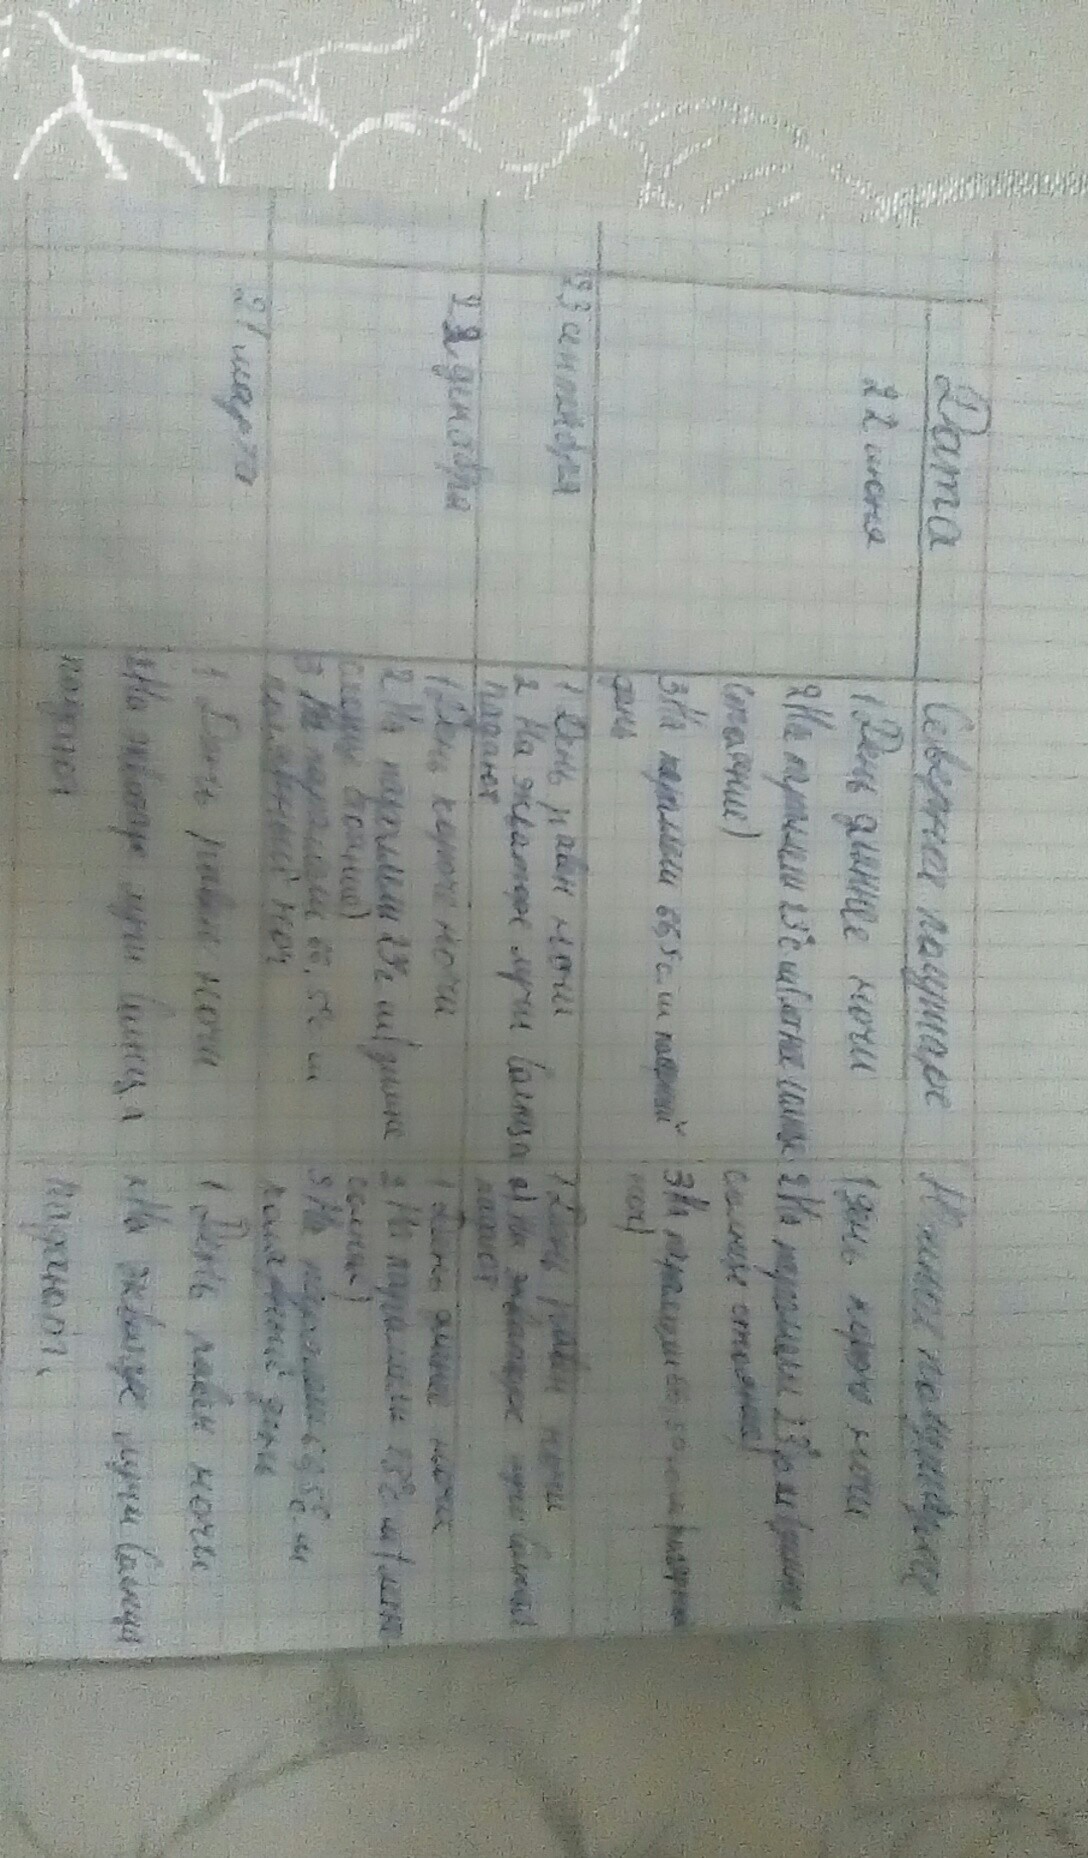 Дата
Северное полушарие
Южное полушарие
22 июня
1 День длиннее ночи
2 На параллели 23° с ш (
стояние)
3 На параллели 66,5 с. ш полярный
день
1 день короче ночи
2 На параллели 23°
солнце стояния)
3 На параллели 66,5°
ноч)
23 сентября
1 День равен ночи
2 На экваторе лучи Солнца
падают
1 День равен ночи
2) На экваторе лучи Солнца
падают
22 декабря
1 День короче ночи
2 На параллели 23° с ш (
солнце стояние)
3 На параллели 66,5° с ш
полярный ноч
1 День длиннее ночи
2 На параллели 23° ш (
солнца)
3 На параллели 66,5° ш
полярный день
21 марта
1 День равен ночи
2 На экваторе лучи Солнца
падают
1 День равен ночи
2 На экваторе лучи Солнца
падают.